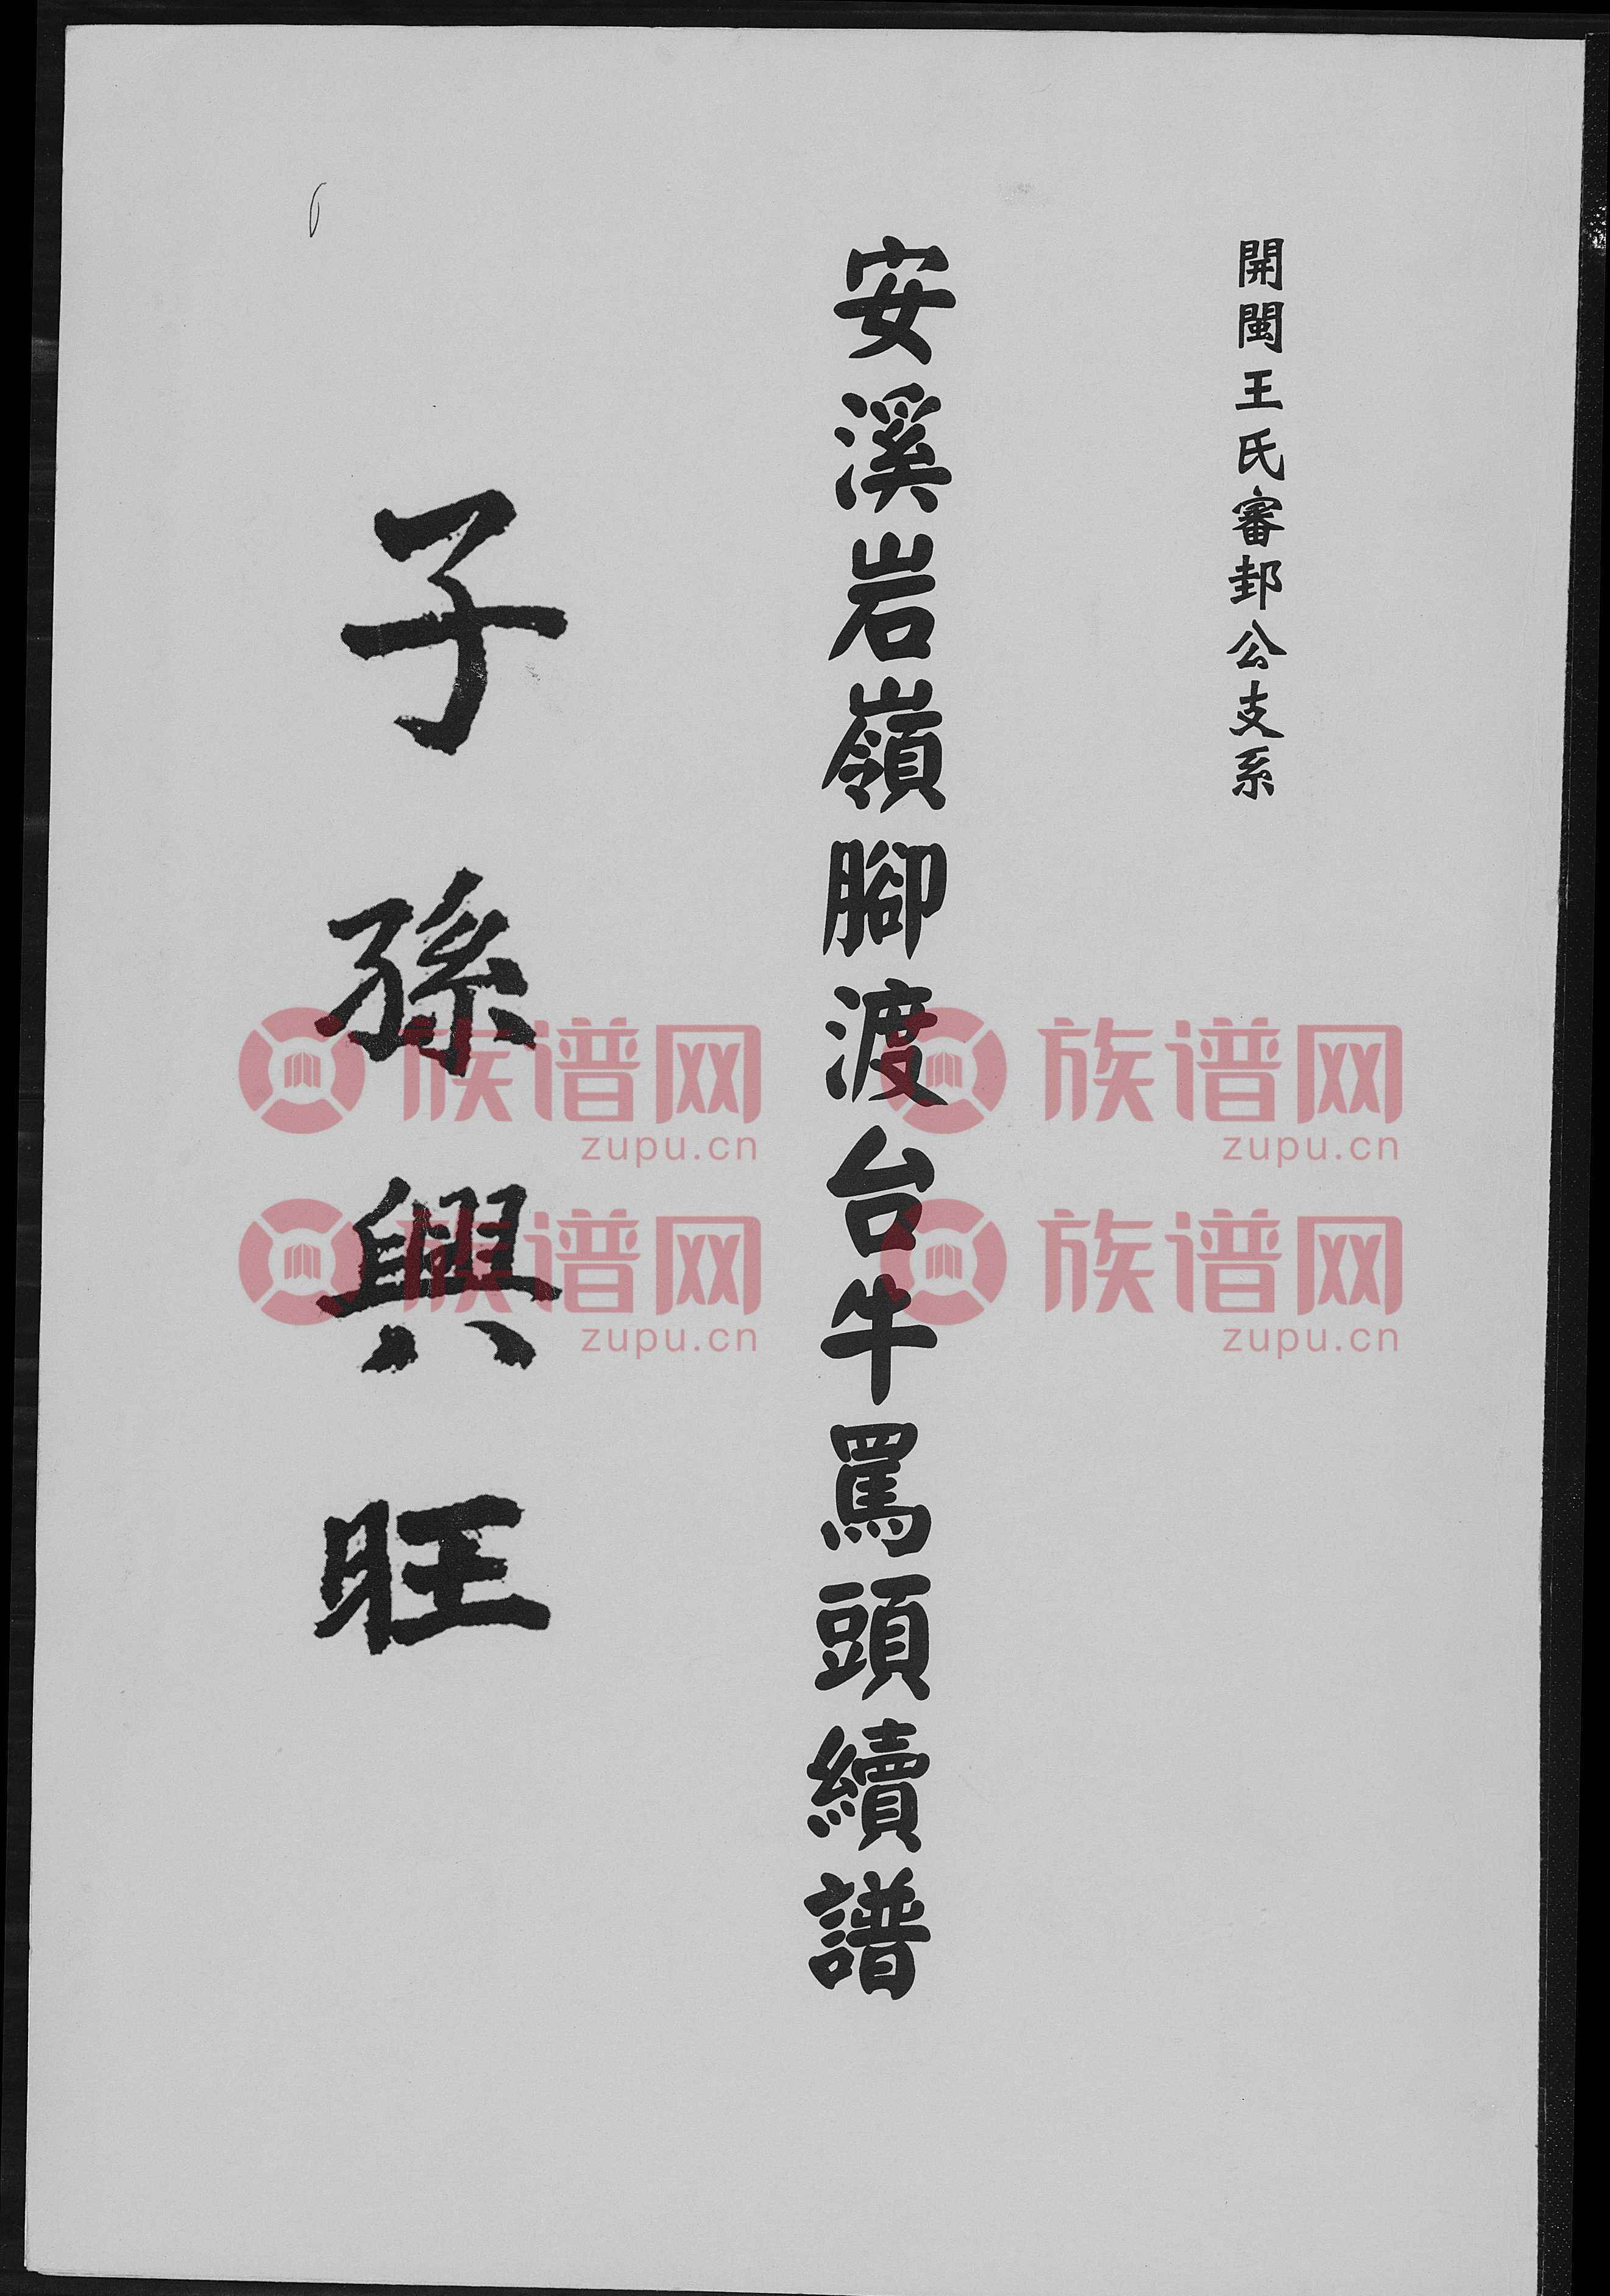 開閩王氏審邽公支系
安溪岩嶺腳渡台牛罵頭續譜
子孫興旺
族谱网 zupu.cn
族谱网 zupu.cn
族谱网 zupu.cn
族谱网 zupu.cn